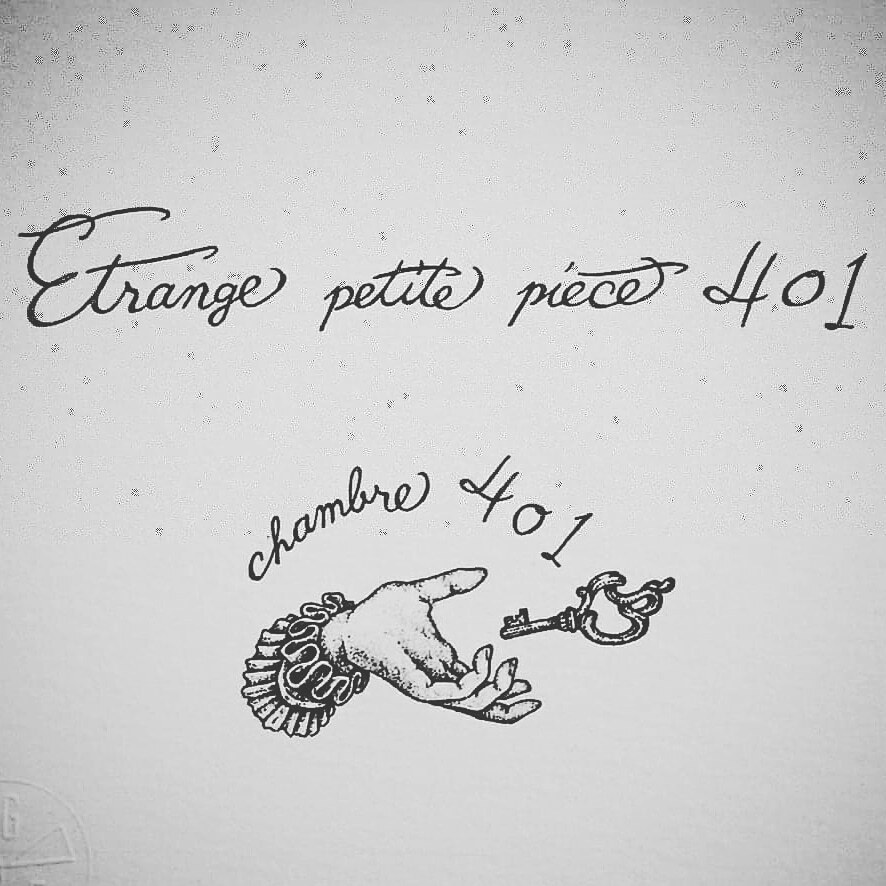 Etrange petite pièce 401
chambre 401
G